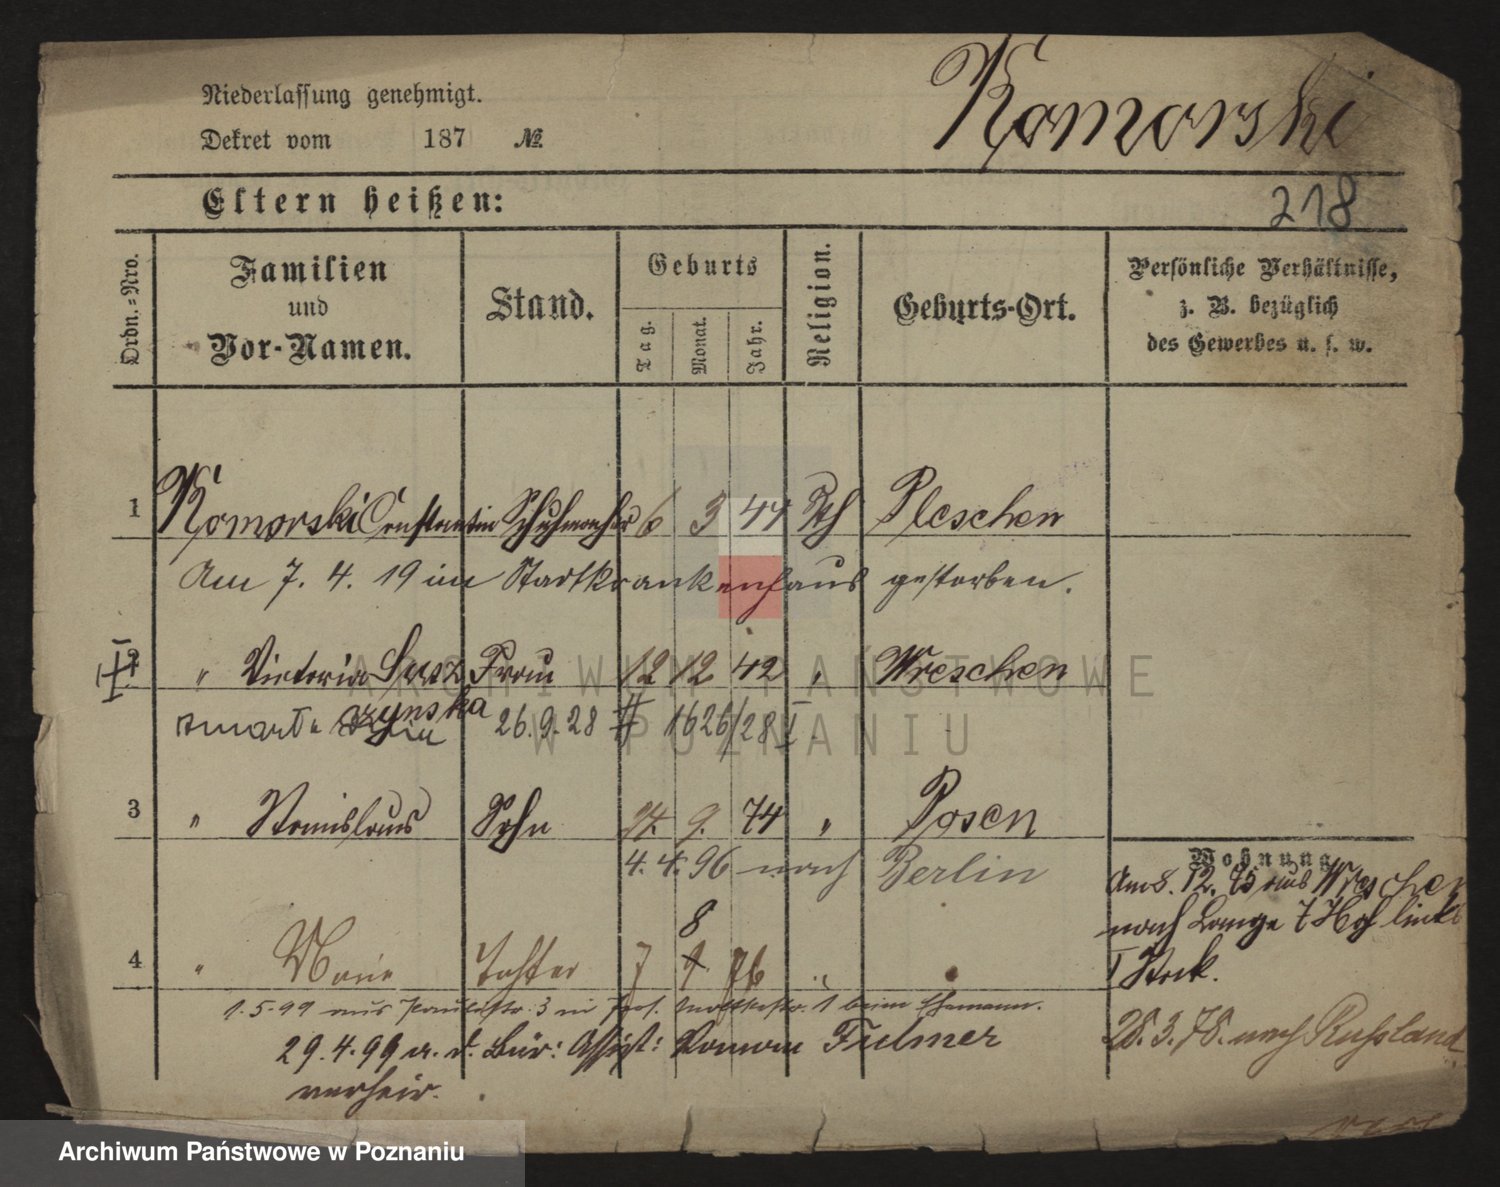 Niederlassung genehmigt.
Dekret vom 187 №
Komorski
Eltern heißen:
218
Ordn.=Nro.
Familien
und
Vor-Namen.
Stand.
Geburts
Tag.
Monat.
Jahr.
Religion.
Geburts-Ort.
Persönliche Verhältnisse,
z. B. bezüglich
des Gewerbes u. s. w.
1 Komorski Constantin Schuhmacher 6 3 44 Kth Pleschen
Am 7. 4. 19 im Stadtkrankenhaus gestorben.
2 " Victoria Frau 12 12 42 " Wreschen
26.9.28 1626/28 I.
3 " Stanislaus Sohn 24. 9. 74 " Posen
4. 4. 96 nach Berlin
Wohnung
Am 8. 12. 75 aus Wreschen
nach Lange 7 Hof links
I Stock.
8
4 " Marie Tochter 7 1 76 " "
1.5.99 aus 3 in 1 beim Ehemann.
29.4.99 a. d. Bür: Assist: Roman Fulmer
verheir.
28. 3. 78. nach Russland
ARCHIWUM PAŃSTWOWE
W POZNANIU
Archiwum Państwowe w Poznaniu